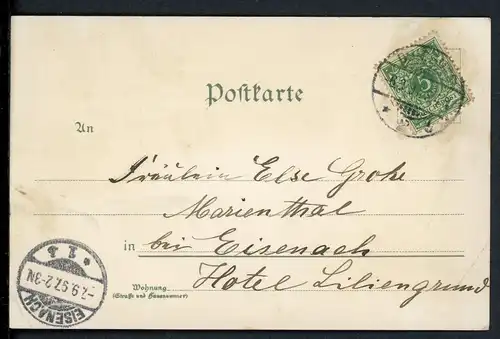 Postkarte
An
Fräulein Else Grohe
Marienthal
in bei Eisenach
Hotel Liliengrund
Wohnung
(Straße und Hausnummer)
EISENACH
-7.9.97.2-3N
* 2 *
5